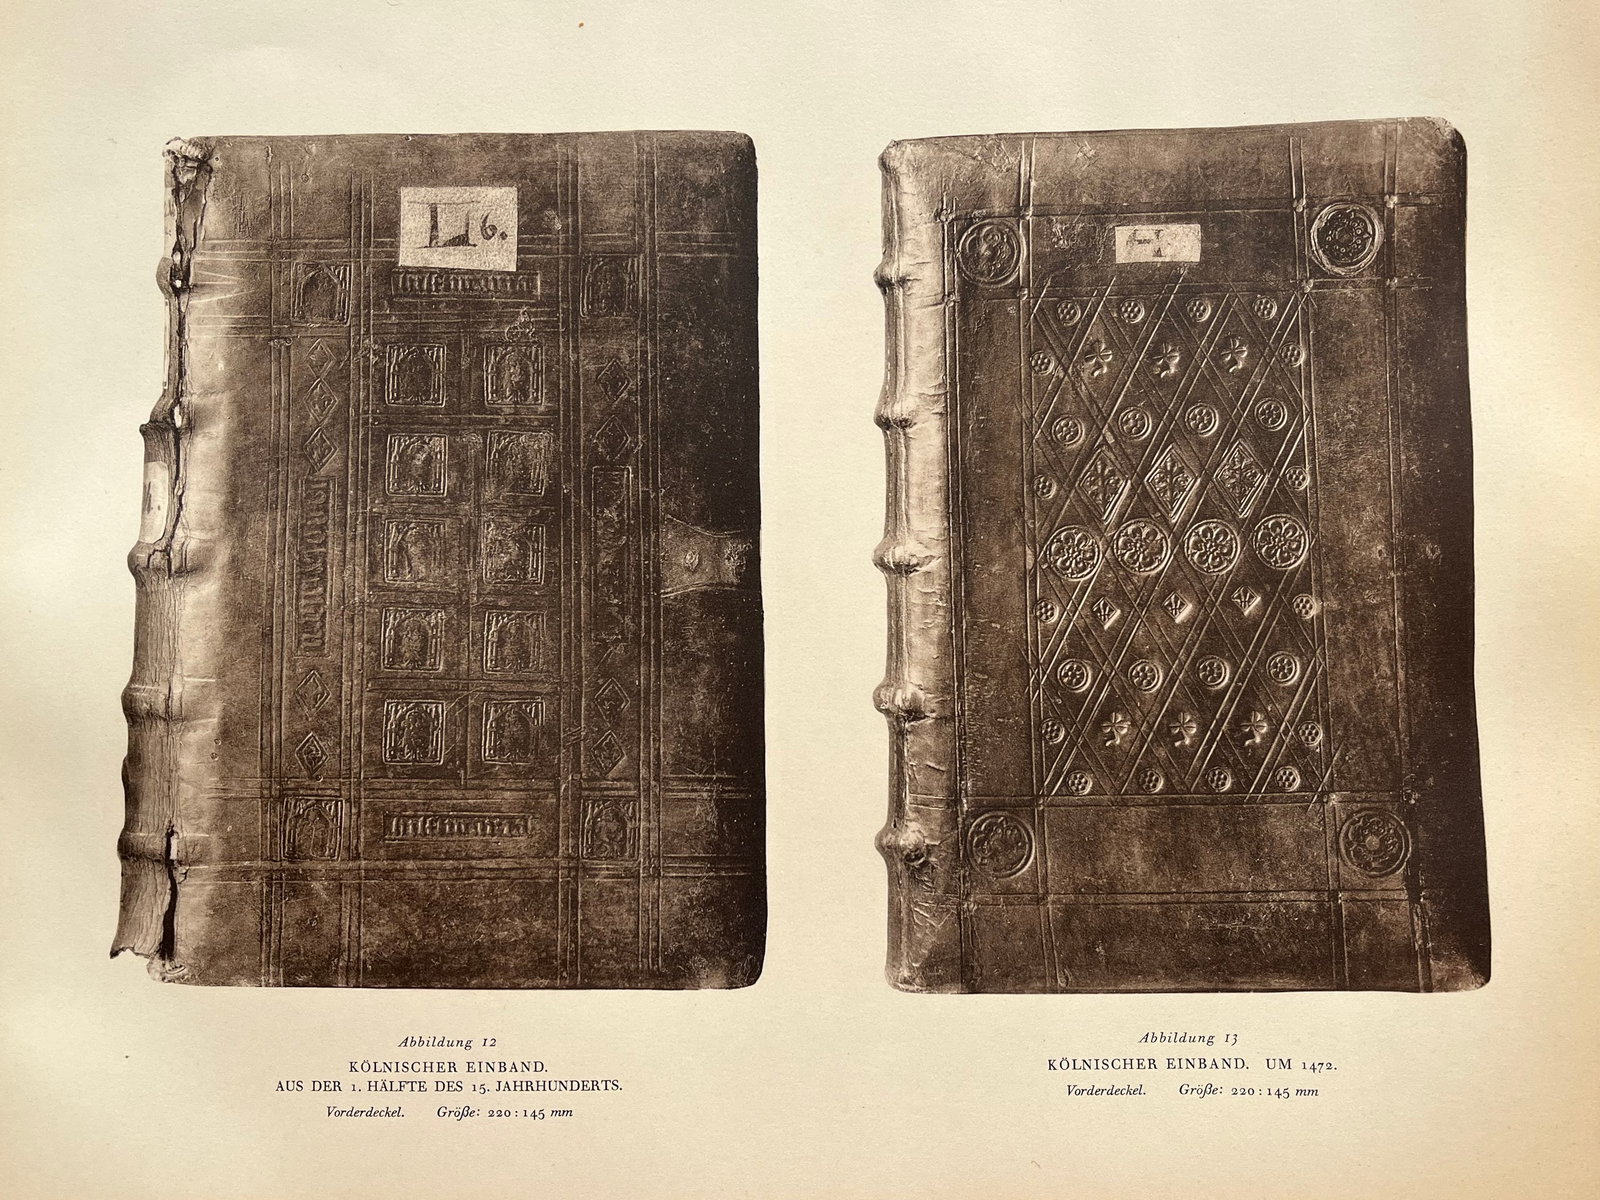 Abbildung 12
KÖLNISCHER EINBAND.
AUS DER 1. HÄLFTE DES 15. JAHRHUNDERTS.
Vorderdeckel. Größe: 220 : 145 mm
Abbildung 13
KÖLNISCHER EINBAND. UM 1472.
Vorderdeckel. Größe: 220 : 145 mm